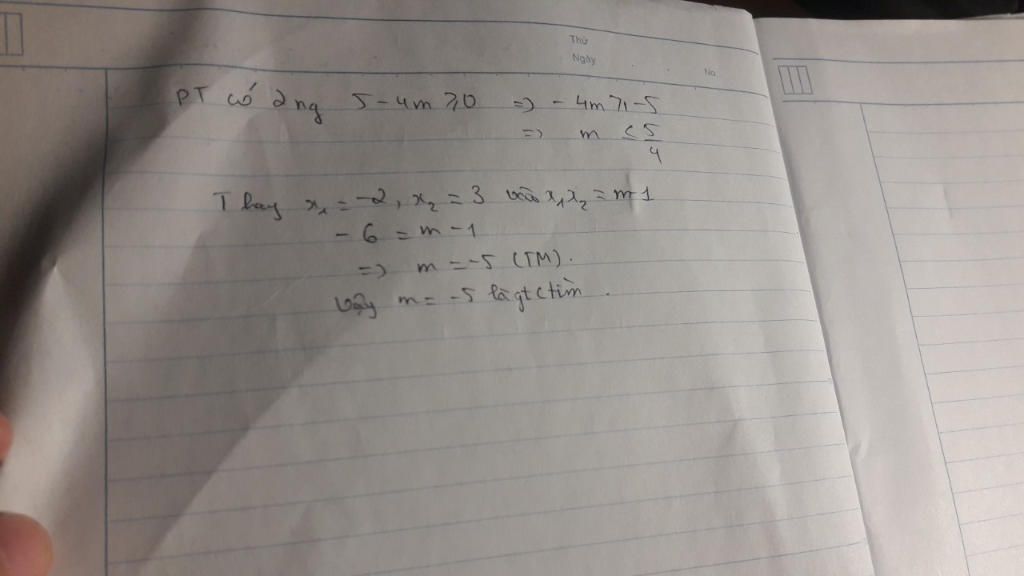 Thứ
Ngày
No
PT có 2 ng 5 - 4m ⩾ 0 => - 4m ⩾ - 5
=> m ≤ 5/4
Thay x₁ = -2, x₂ = 3 vào x₁x₂ = m-1
- 6 = m - 1
=> m = -5 (TM).
Vậy m = -5 là gt ctìm .